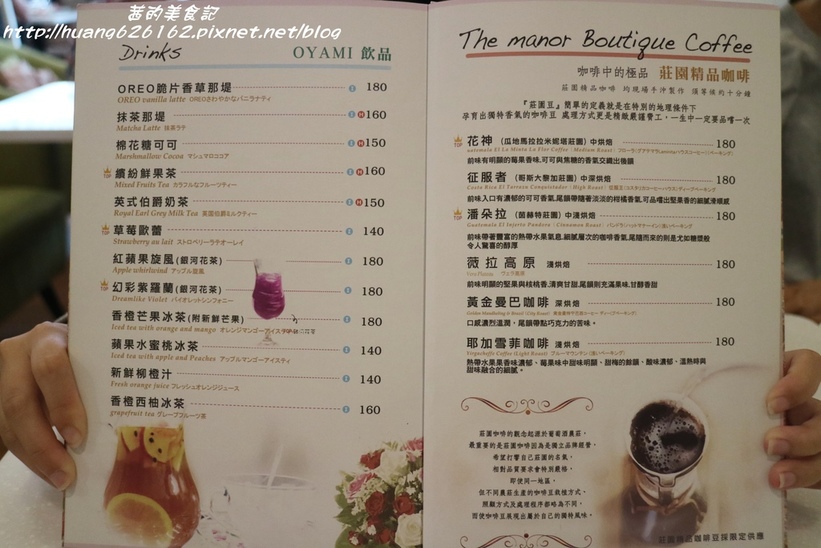 茜的美食記
http://huang626162.pixnet.net/blog
Drinks
OYAMI 飲品
OREO脆片香草那堤 180
OREO vanilla latte OREOさわやかなバニラナティ
抹茶那堤 160
Matcha Latte 抹茶ラテ
棉花糖可可 150
Marshmallow Cocoa マシュマロココア
繽紛鮮果茶 160
Mixed Fruits Tea カラフルなフルーツティー
英式伯爵奶茶 150
Royal Earl Grey Milk Tea 英国伯爵ミルクティー
草莓歐蕾 140
Strawberry au lait ストロベリーラテオーレイ
紅蘋果旋風(銀河花茶) 180
Apple whirlwind アップル旋風
幻彩紫羅蘭(銀河花茶) 180
Dreamlike Violet バイオレットシンフォニー
香橙芒果冰茶(附新鮮芒果) 180
Iced tea with orange and mango オレンジマンゴーアイスティー
蘋果水蜜桃冰茶 140
Iced tea with apple and Peaches アップルマンゴーアイスティ
新鮮柳橙汁 140
Fresh orange juice フレッシュオレンジジュース
香橙西柚冰茶 160
grapefruit tea グレープフルーツ茶
The manor Boutique Coffee
咖啡中的極品 莊園精品咖啡
莊園精品咖啡 均現場手沖製作 須等候約十分鐘
『莊園豆』簡單的定義就是在特別的地理條件下
孕育出獨特香氣的咖啡豆 處理方式更是精緻嚴謹費工，一生中一定要品嚐一次
花神 (瓜地馬拉拉米妮塔莊園)中烘焙 180
La Minita La Flor Coffee (Medium Roast)
前味有明顯的莓果香味,可可與焦糖的香氣交織出後韻
征服者 (哥斯大黎加莊園)中深烘焙 180
Costa Rica El Tarrazu Conquistador (High Roast)
前味入口有濃郁的可可香氣,尾韻帶隨著淡淡的柑橘香氣,可品嚐出堅果香的細膩滑順感
潘朵拉 (茵赫特莊園)中淺烘焙 180
Guatemala El Injerto Pandora (Cinnamon Roast)
前味帶著豐富的熱帶水果氣息,細膩層次的咖啡香氣,尾隨而來的則是尤如糖漿般
令人驚喜的醇厚
薇拉高原 淺烘焙 180
前味明顯的堅果與核桃香,清爽甘甜,尾韻則充滿果味,甘醇香甜
黃金曼巴咖啡 深烘焙 180
Golden Mandheling & Brazil (City Roast)
口感濃烈溫潤，尾韻帶點巧克力的苦味。
耶加雪菲咖啡 淺烘焙 180
Yirgacheffe Coffee (Light Roast)
熱帶水果果香味濃郁、莓果味中甜味明顯、甜梅的餘韻、酸味濃郁、溫熱時與
甜味融合的細膩。
莊園咖啡的觀念起源於葡萄酒農莊。
最重要的是莊園咖啡因為是獨立品牌經營，
希望打響自己莊園的名氣，
相對品質要求會特別嚴格。
即使同一地區，
但不同農莊生產的咖啡豆栽植方式，
照顧方式及處理程序都略為不同，
而使咖啡豆展現出屬於自己的獨特風味。
莊園精品咖啡豆採限定供應